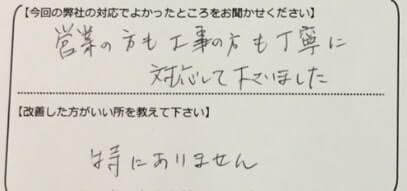 【今回の弊社の対応でよかったところをお聞かせください】
営業の方も工事の方も丁寧に
対応して下さいました
【改善した方がいい所を教えて下さい】
特にありません